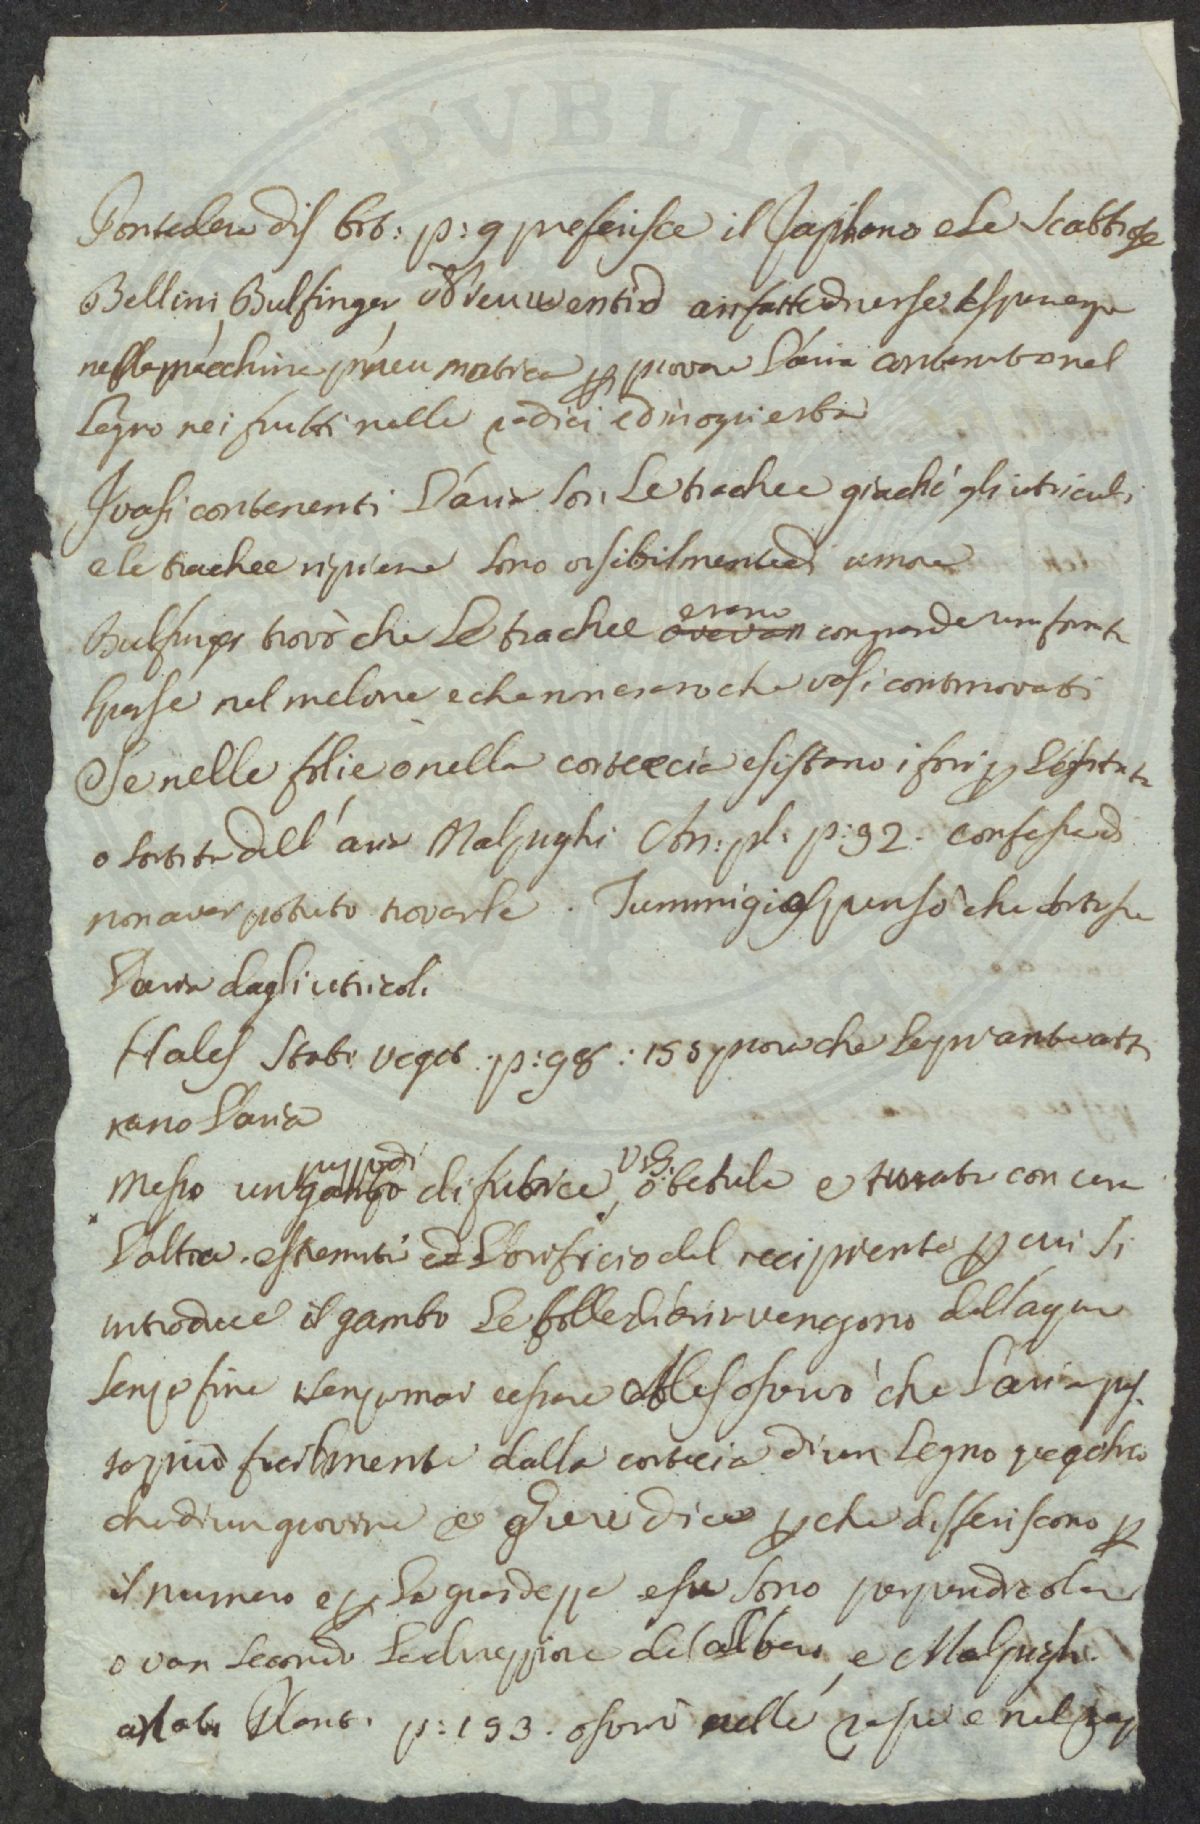 PUBLICA
Pontedera dis bot: p: 9 preferisce il Japhano e le Scabbiose
Bellini Bulfinger Nieuwentid an fatte diverse esperienze
nella macchina pneumatica p provare l'aria contenuta nel
Legno nei frutti nelle radici ed in ogni erba
I vasi contenenti l'aria son Le trachee giaché gli utriculi
e le trachee ripiene sono visibilmente di umore
Bulfinger trovò che Le trachee erano con grande uniformità
sparse nel melone e che non erano che vasi continovati
Se nelle folie o nella corteccia esistano i fori p l'
o sortita dell'aria Malpughi An: pl: p: 92. confessa di
non aver potuto trovarle. Tummigius pensò che sortisse
L'aria dagli utricoli
Hales Stat: veget: p: 98: 155 prova che le piante atti
rano L'aria
Messo un gambo di , o betula e turata con cera
L'altra estremità ed L'orificio del recipiente p cui si
introduce il gambo Le bolle d'aria vengono dall'aqua
senza fine e senza mai cessare Ales osservò che L'aria pas
sa più facilmente dalla corteccia di un Legno vecchio
che di un giovine e Grew dice p che differiscono p
il numero e p La grandezza e se sono perpendicolar
o van secondo La direzzione del'albero, e Malpighi
anato Plant. p: 193. osservò nelle rape e nel